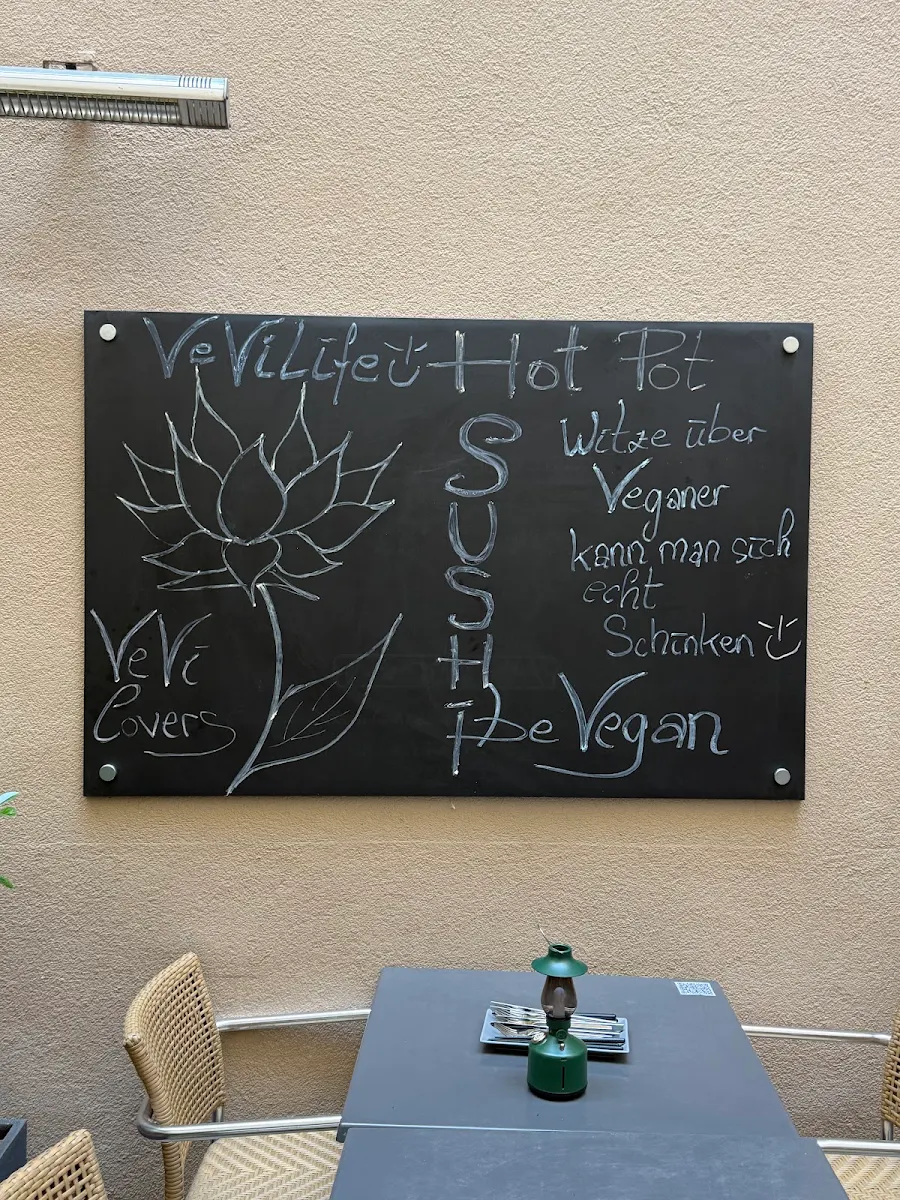 VeViLife Hot Pot
SUSHI
Witze über
Veganer
kann man sich
echt
Schinken
VeVi
Covers
Be Vegan